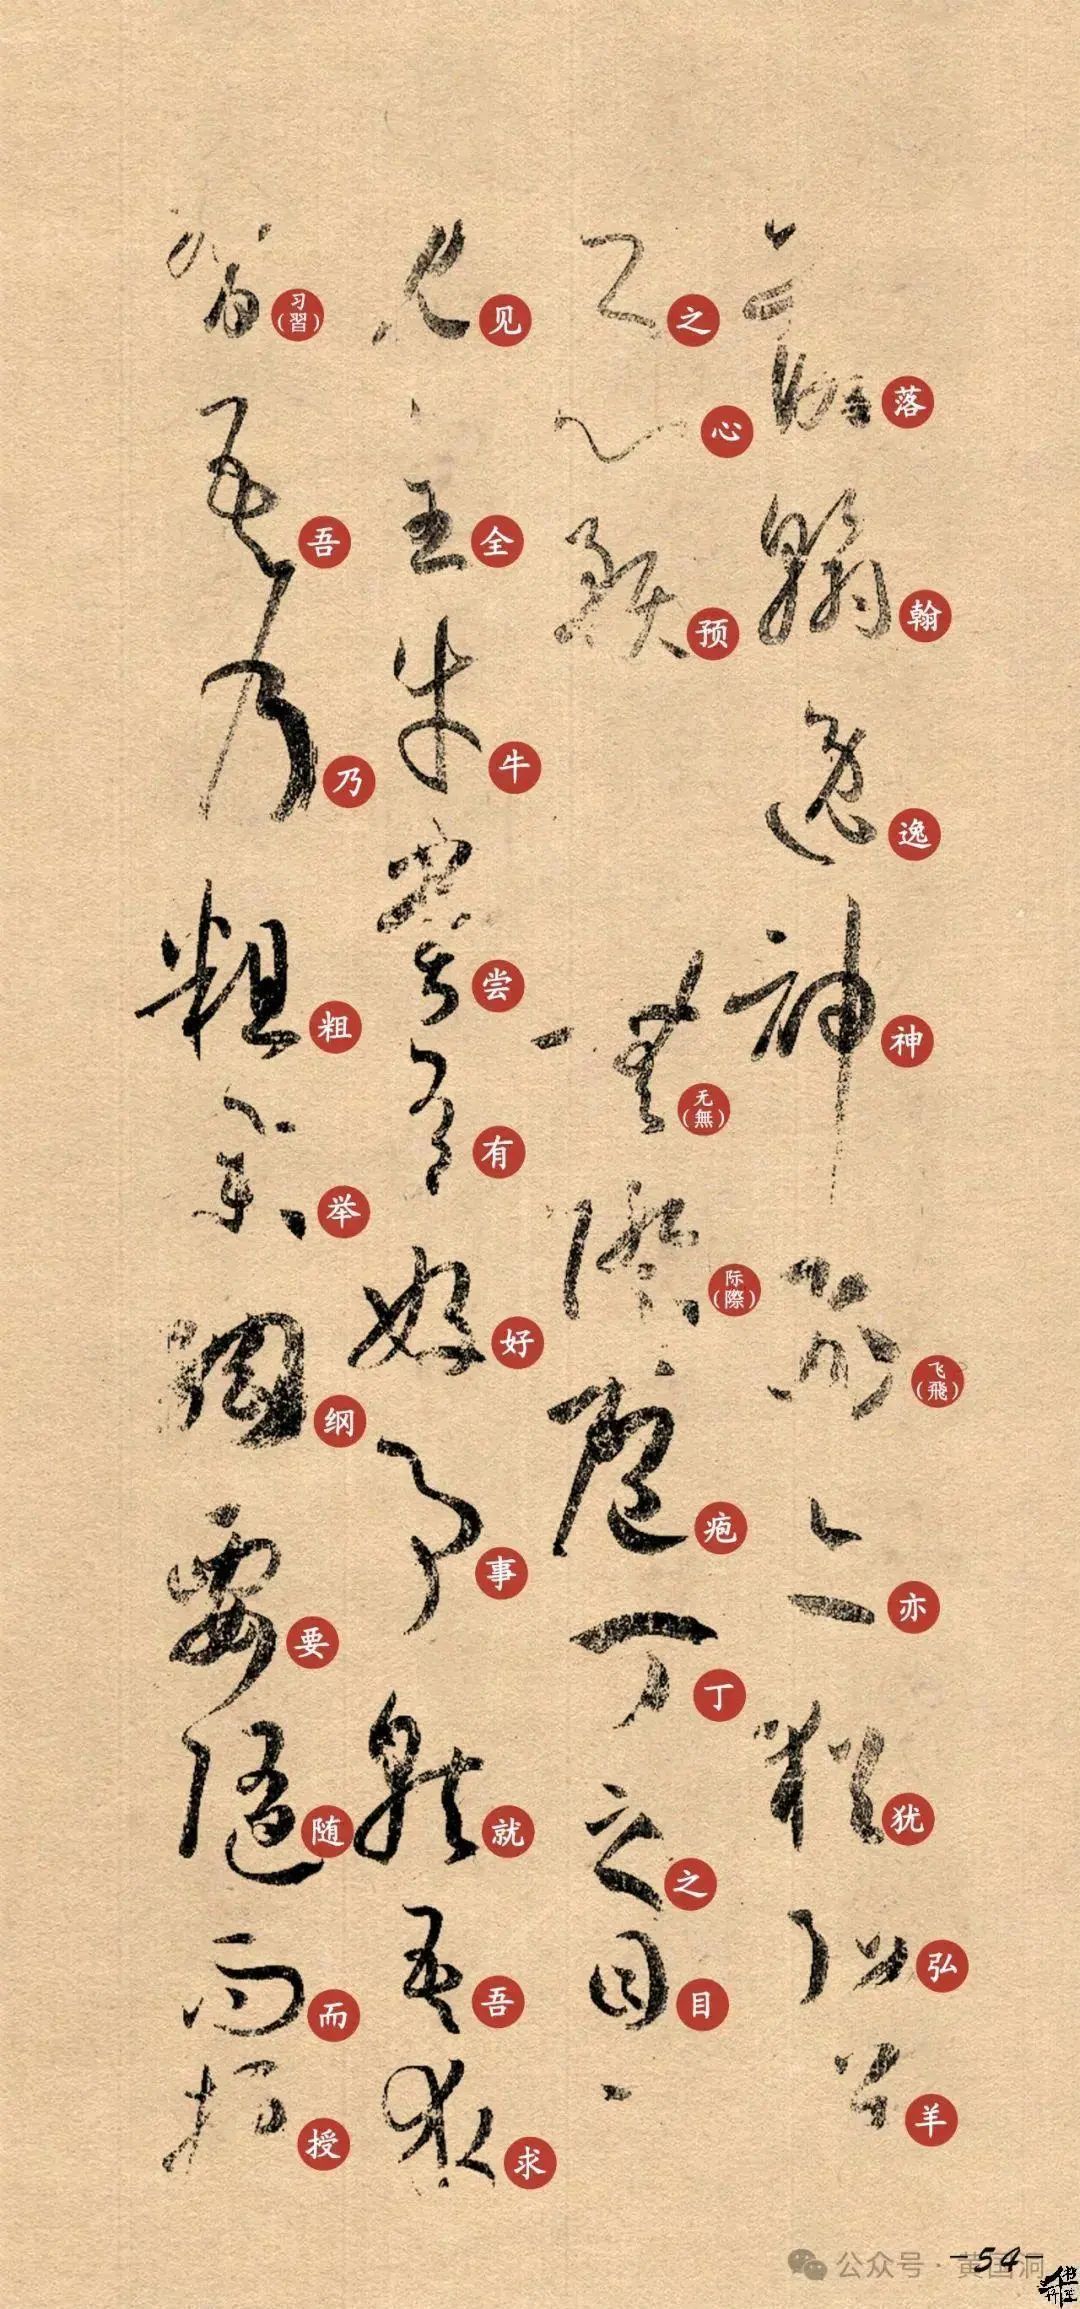 落翰逸神飞(飛)亦犹弘羊
之心预无(無)际(際)疱丁之目
见全牛尝有好事就吾求
习(習)吾乃粗举纲要随而授
公众号·黄国洞
-54-